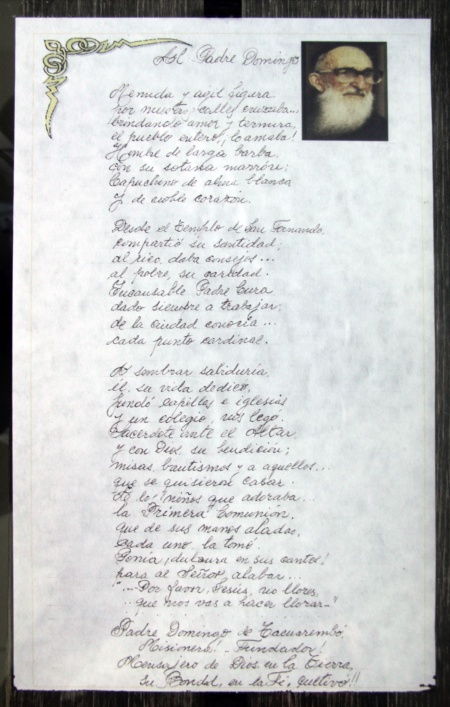 Al Padre Domingo
Menuda y agil figura
por nuestras calles cruzaba...
brindando amor y ternura,
el pueblo entero, lo amaba!
Hombre de larga barba
con su sotana marrón;
Capuchino de alma blanca
y de noble corazon.
Desde el Templo de San Fernando,
compartió su santidad;
al rico, daba consejos...
al pobre, su caridad.
Incansable Padre Cura
dado siempre a trabajar;
de la ciudad conocía...
cada punto cardinal.
A sembrar sabiduría
él, su vida dedicó,
fundó capillas e iglesias
y un colegio, nos legó.
Sacerdote ante el Altar,
y con Dios, su bendición;
misas, bautismos y a aquellos...
que se quisieron casar.
A los niños que adoraba...
la Primera Comunión,
que de sus manos aladas,
cada uno, la tomó.
Tenía ¡dulzura en sus cantos!
para al Señor, alabar...
"...Por favor, Jesús, no llores,
...que nos vas a hacer llorar..."
Padre Domingo de Tacuarembó,
Misionero! - Fundador!
Mensajero de Dios en la Tierra,
Su Bondad, en la Fé, cultivó!!